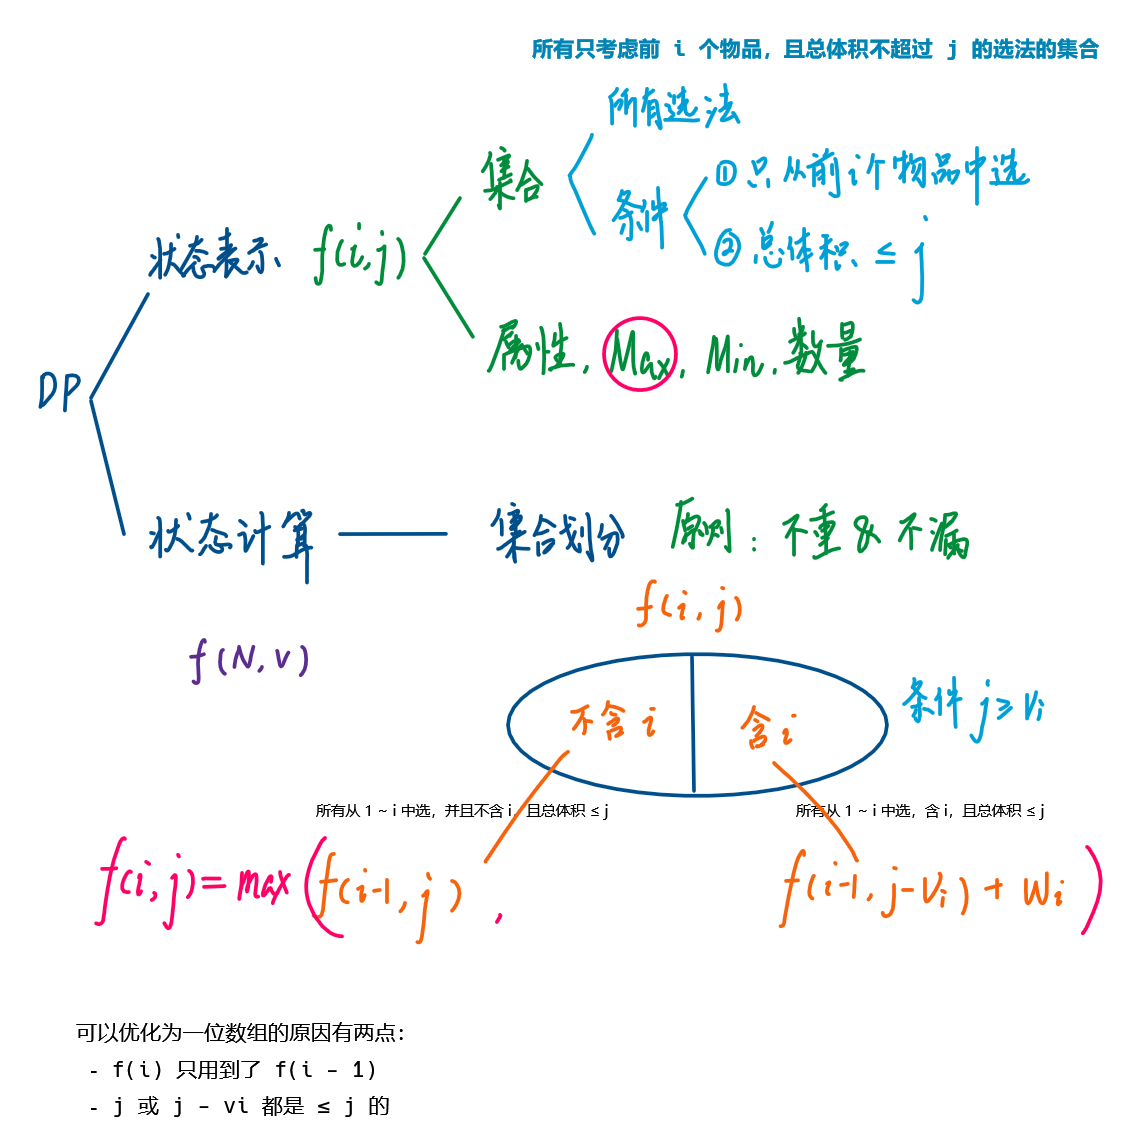 所有只考虑前 i 个物品，且总体积不超过 j 的选法的集合
所有选法
集合
①只从前i个物品中选
条件
②总体积 ≤ j
状态表示 f(i,j)
属性, Max, Min, 数量
DP
状态计算
集合划分 原则: 不重 & 不漏
f(i,j)
f(N,V)
不含 i
含 i
条件 j≥Vi
所有从 1 ~ i 中选，并且不含 i，且总体积 ≤ j
所有从 1 ~ i 中选，含 i，且总体积 ≤ j
f(i,j)=max(f(i-1,j), f(i-1,j-Vi)+Wi)
可以优化为一位数组的原因有两点：
- f(i) 只用到了 f(i - 1)
- j 或 j - vi 都是 ≤ j 的